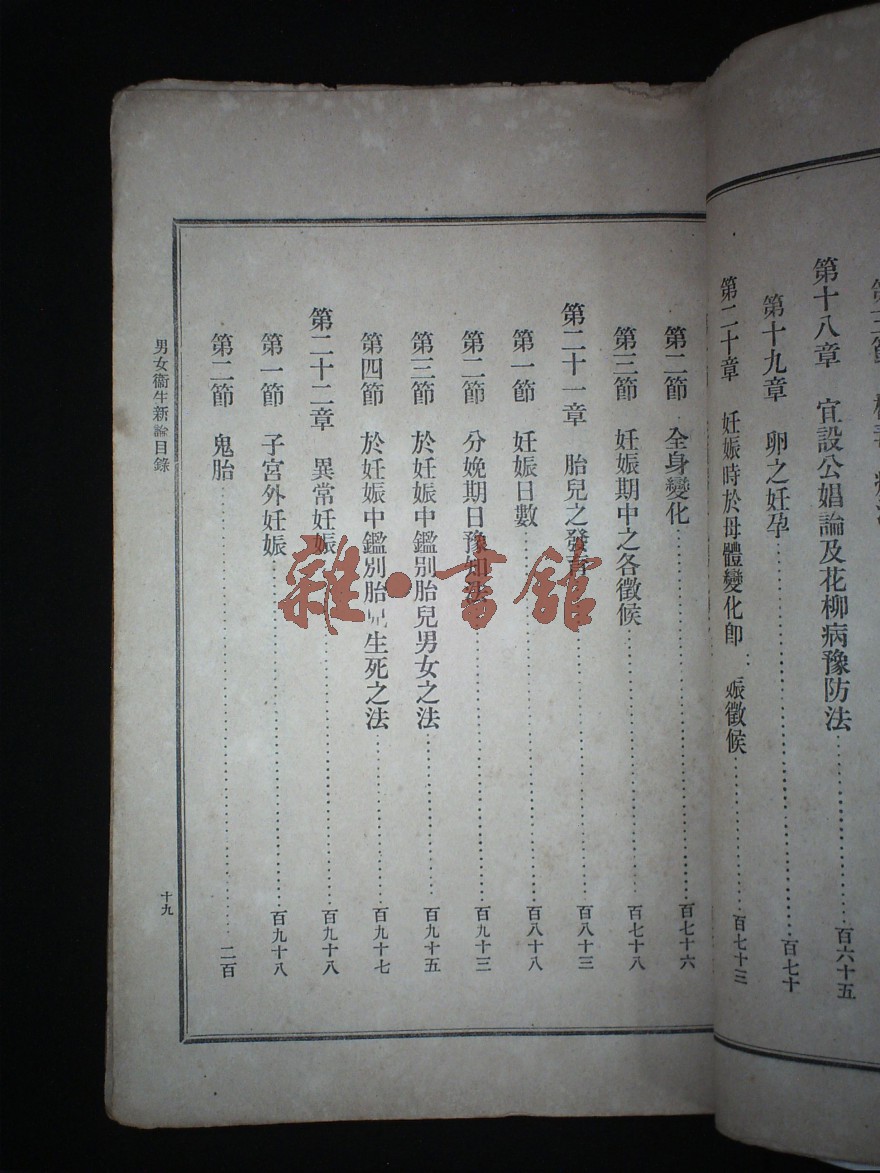 第十八章 宜設公娼論及花柳病豫防法 百六十五
第十九章 卵之妊孕 百七十
第二十章 妊娠時於母體變化即 娠徵候 百七十三
第二節 全身變化 百七十六
第三節 妊娠期中之各徵候 百七十八
第二十一章 胎兒之發育 百八十三
第一節 妊娠日數 百八十八
第二節 分娩期日豫知法 百九十三
第三節 於妊娠中鑑別胎兒男女之法 百九十五
第四節 於妊娠中鑑別胎兒生死之法 百九十七
第二十二章 異常妊娠 百九十八
第一節 子宮外妊娠 百九十八
第二節 鬼胎 二百
男女衞生新論目錄
十九
雜·書館